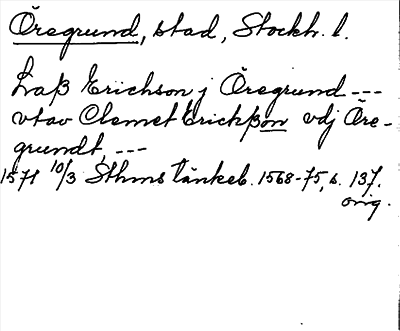 Öregrund, stad, Stockh. l.
Laß Erichson j Öregrund ---
vtav Clemet Erickßon vdj Öre-
grundt, ---
1571 10/3 Sthms tänkeb. 1568-75, s. 137.
orig.